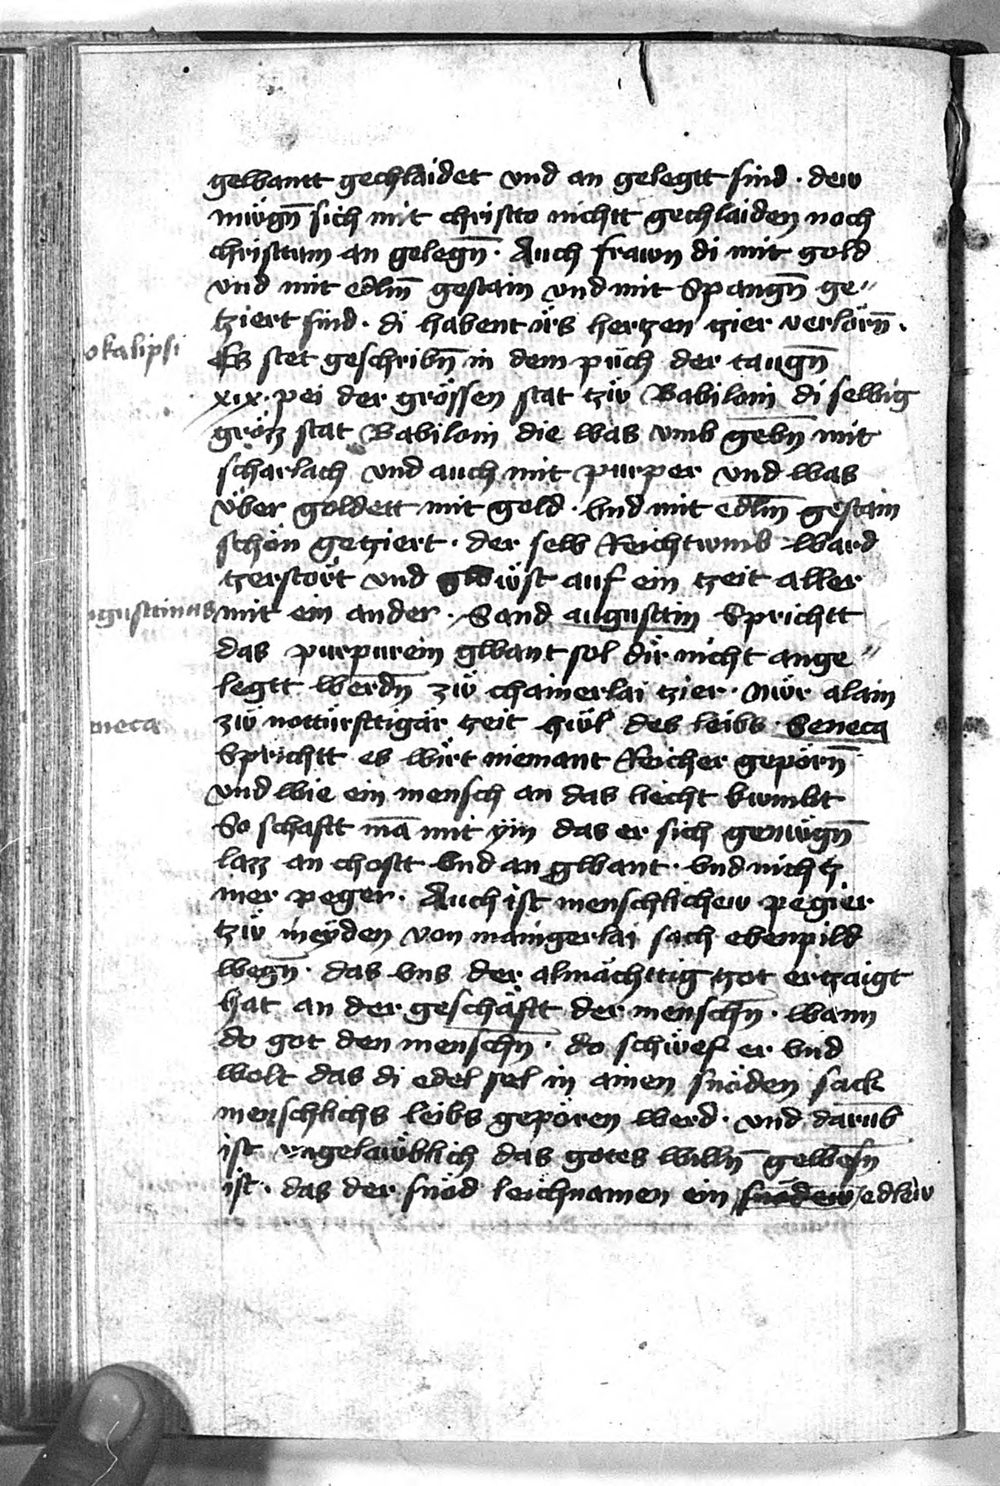 gewantt gechlaidet vnd an gelegtt sind · dew
mügn̄ sich mit christo nichtt gechlaiden noch
christum an gelegn̄ · Auch frawn di mit gold
vnd mit edlm̄ gestain vnd mit Spangn̄ ge〃
tziert sind · di habent irs hertzen tzier verlorn̄ ·
okalipsi
Es stet geschribn̄ in dem püch der taugn̄
xix · pei der grössen stat tzw Babiloni di selbig
gröz stat Babiloni die was vmb gebn̄ mit
scharlach vnd auch mit purper vnd was
vber goldett mit gold · vnd mit edlm̄ gestain
schön getziert · der selb Reichtumb ward
tzerstört vnd wüst auf ein tzeit aller
gusttinus
mit ein ander · Sand augustin Sprichtt
das purpurein gwant sol dir nicht ange〃
legtt werdn̄ zw chainerlai tzier · nür alain
zw notturfttigär tzeit hül des leibs · Seneca
neca
Sprichtt es wirt niemant Reicher geporn̄
vnd wie ein mensch an das liecht kumbt
So schaftt mā mit ym das er sich genügn̄
lazz an chostt vnd an gwant · vnd nichtz
mer peger · Auch ist menschlichew pegier
tzw meyden von manigerlai sach ebenpild
wegn̄ · das vns der almächttig got ertzaigt
hat an der geschäftt der menschn̄ · wann
do got den menschn̄ · do schüef er vnd
wolt das di edel sel in ainen snöden sack
menschlichs leibs geporen werd · vnd darūb
ist vngelawblich das gotes willn̄ gewesn̄
ist · das der snöd leichnamen ein snödew edlew